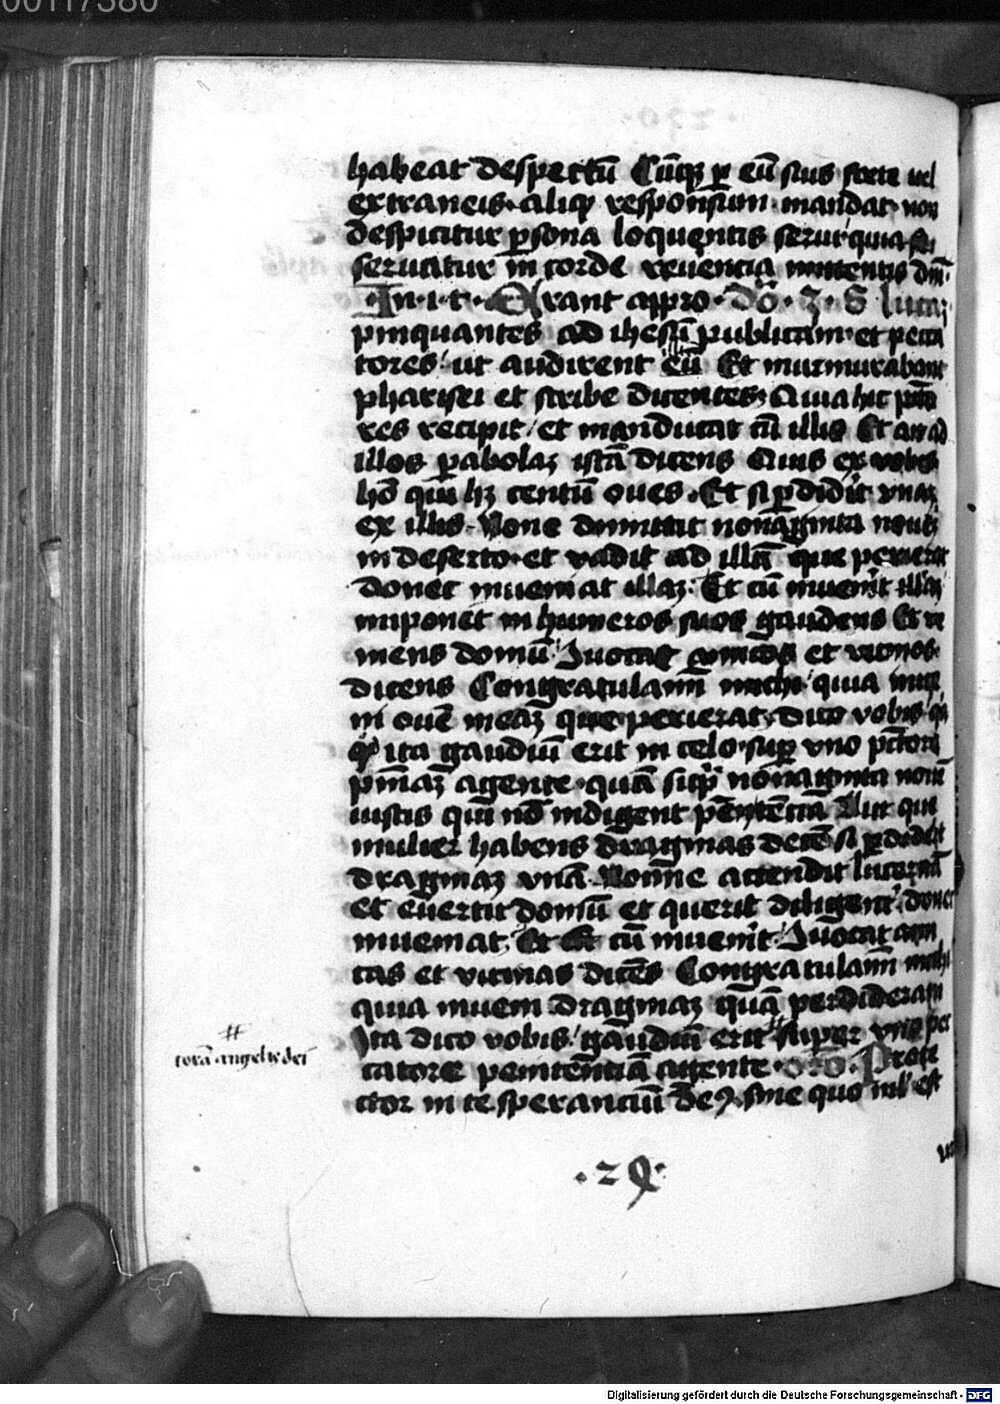 00117380
habeat despectū Cūqꝫ ꝑ eū suis forte uel
extraneis aliqͥ responsum mandat non
despicitur ꝑsona loquentis serui quia
seruatur in corde reuencia mittentis dn̄i
In · i · t · Erant appro · dō · 3 · S lucaꝫ
pinquantes ad ihesū publicani et pecca
tores ut audirent illū Et murmurabant
pharisei et scribe dicentes Quia hic pc̄ca
res recipit / et manducat cū illis Et ait ad
illos ꝑabolaꝫ istā dicens Quis ex vobis
hō qui hꝫ centū oues Et si ꝑdidit vnaꝫ
ex illis Nōne dimittit nonaginta nouē
in deserto et vadit ad illā que perierat
donec inueniat illaꝫ Et cū inuenit illaꝫ
imponet in humeros suos gaudens Et ve
niens domū ɔuocat amicos et vicinos
dicens Congratulamī michi quia inue
ni ouē meaꝫ que perierat Dico vobis
qͥ ita gaudiū erit in celo suꝑ vno pc̄tore
pn̄iaꝫ agente quā suꝑ nonaginta nouē
iustis qui nō indigent penitēciā Aut que
mulier habens dragmas decē si ꝑdiderit
dragmaꝫ vnā Nonne accendit lucernā
et euertit domū et querit diligent donec
inueniat Et cū inuenit ɔuocat ami
cas et vicinas dicēs Congratulamī michi
quia inueni dragmaꝫ quā perdideram
Ita dico vobis gaudiū erit super vno pec
catore penitenciā agente · orō · Prote
ctor in te sperancium deꝰ sine quo nil est
corā angelis dei
· 29 ·
Digitalisierung gefördert durch die Deutsche Forschungsgemeinschaft - DFG